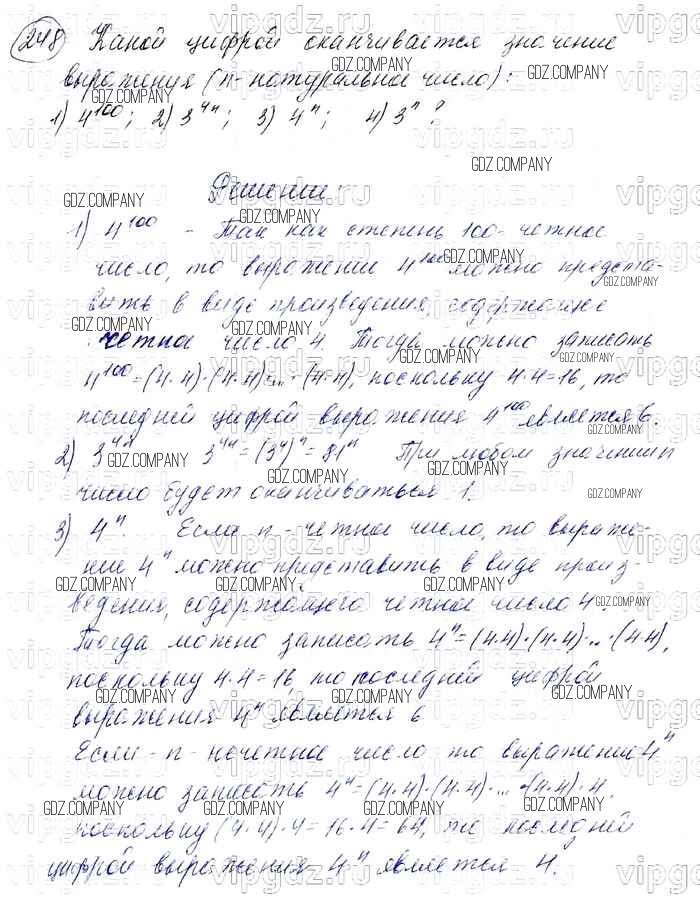 248 Какой цифрой оканчивается значение
выражения (n - натуральное число):
1) 4^100; 2) 3^4n; 3) 4^n; 4) 3^n?
Решение:
1) 4^100 - Так как степень 100 - четное
число, то выражение 4^100 можно предста-
вить в виде произведения, содержащее
четное число 4. Тогда можно записать
4^100 = (4·4)·(4·4)·...·(4·4), поскольку 4·4=16, то
последней цифрой выражения 4^100 является 6.
2) 3^4n 3^4n = (3^4)^n = 81^n При любом значении n
число будет оканчиваться 1.
3) 4^n. Если n - четное число, то выраже-
ние 4^n можно представить в виде произ-
ведения, содержащего четное число 4.
Тогда можно записать 4^n = (4·4)·(4·4)·...·(4·4),
поскольку 4·4=16, то последней цифрой
выражения 4^n является 6
Если - n - нечетное число то выражение 4^n
можно записать 4^n = (4·4)·(4·4)·...·(4·4)·4,
поскольку (4·4)·4=16·4=64, то последней
цифрой выражения 4^n является 4.